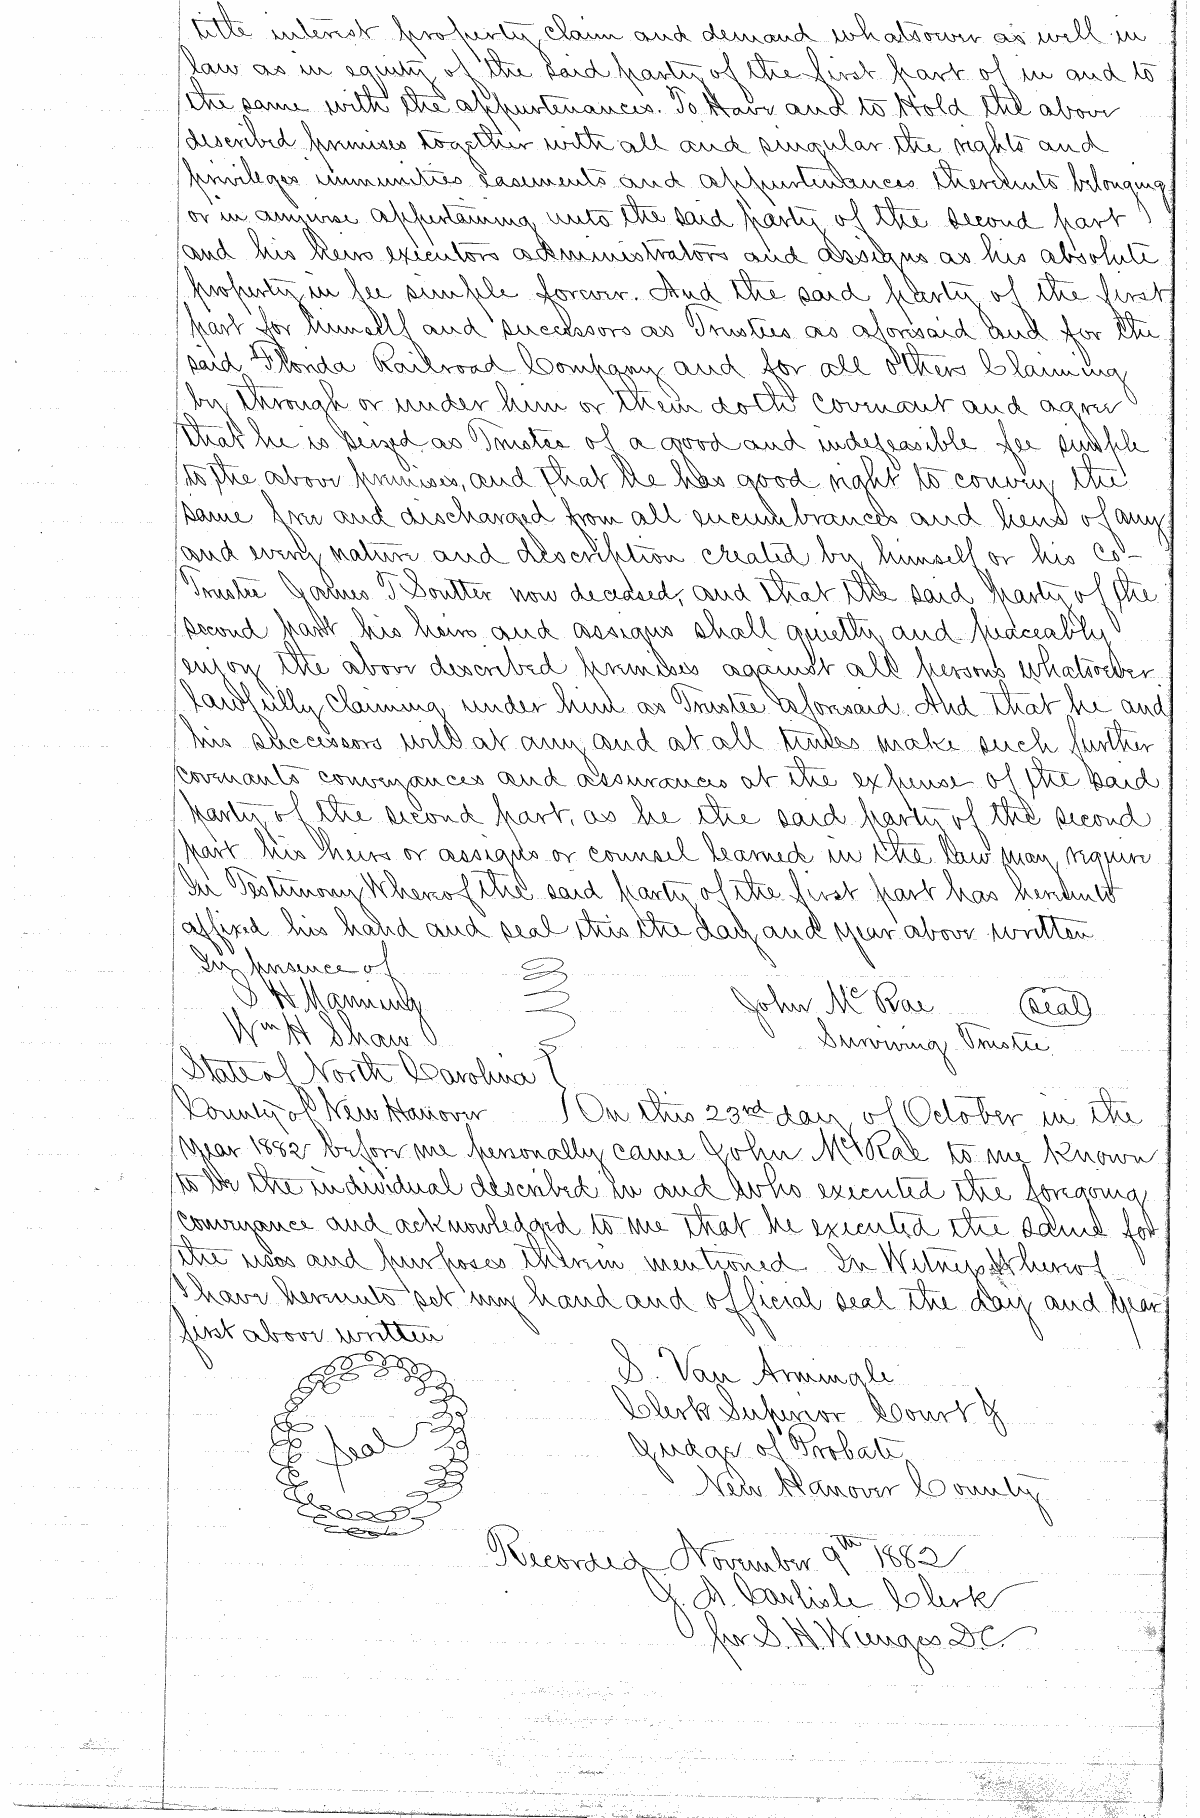 title interest property claim and demand whatsoever as well in
law as in equity of the said party of the first part of in and to
the same with the appurtenances. To Have and to Hold the above
described premises together with all and singular the rights and
privileges immunities easements and appurtenances thereunto belonging
or in anywise appertaining unto the said party of the second part
and his heirs executors administrators and assigns as his absolute
property in fee simple forever. And the said party of the first
part for himself and successors as Trustees as aforesaid and for the
said Florida Railroad Company and for all others Claiming
by through or under him or them doth covenant and agree
that he is seized as Trustee of a good and indefeasible fee simple
to the above premises, and that he has good right to convey the
same free and discharged from all encumbrances and liens of any
and every nature and description created by himself or his Co-
Trustee James T Soutter now deceased, and that the said party of the
second part his heirs and assigns shall quietly and peaceably
enjoy the above described premises against all persons whatsoever
lawfully Claiming under him as Trustee aforesaid. And that he and
his successors will at any and at all times make such further
covenants conveyances and assurances at the expense of the said
party of the second part, as he the said party of the second
part his heirs or assigns or counsel learned in the law may require
In Testimony Whereof the said party of the first part has hereunto
affixed his hand and seal this the day and year above written
In presence of
S H Manning
John McRae (seal)
Wm H Shaw
Surviving Trustee
State of North Carolina
County of New Hanover On this 23rd day of October in the
Year 1882 before me personally came John McRae to me known
to be the individual described in and who executed the foregoing
conveyance and acknowledged to me that he executed the same for
the uses and purposes therein mentioned In Witness Whereof
I have hereunto set my hand and official seal the day and year
first above written
S. Van Amringle
Clerk Superior Court &
seal
Judge of Probate
New Hanover County
Recorded November 9th 1882
J. A. Carlisle Clerk
for S. H. Wienges D.C.